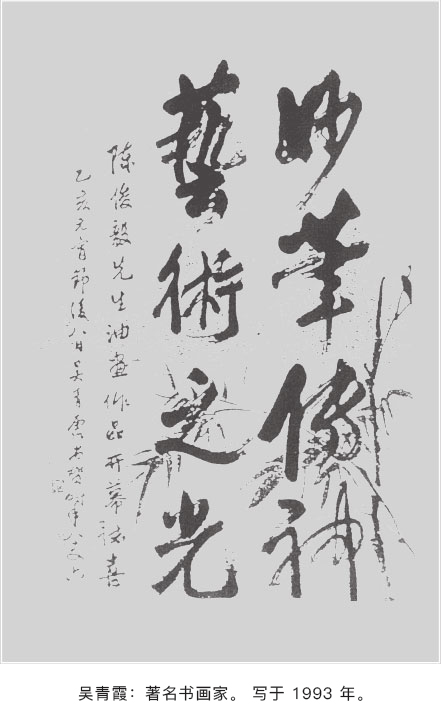 妙筆傳神
藝術之光
陈俊毅先生油畫作品开幕誌喜
乙亥元宵節後八日吴青霞
吴青霞：著名书画家。 写于 1993 年。